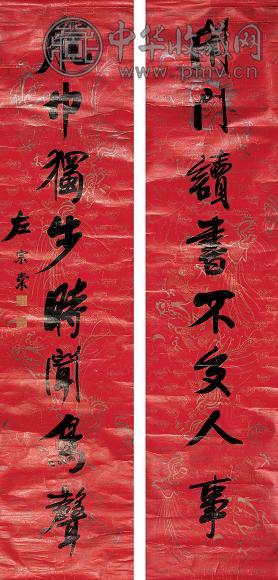 中华收藏网
閉門讀書不交人事
巾獨步時聞鳥聲
左宗棠